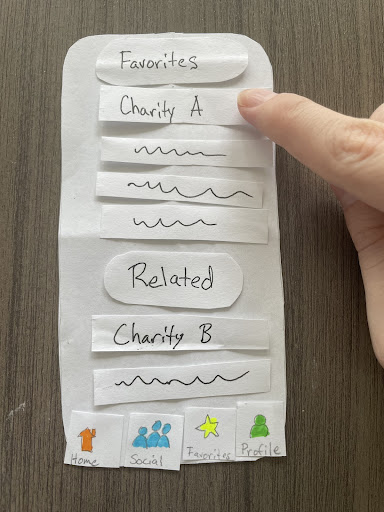 Favorites
Charity A
Related
Charity B
Home Social Favorites Profile